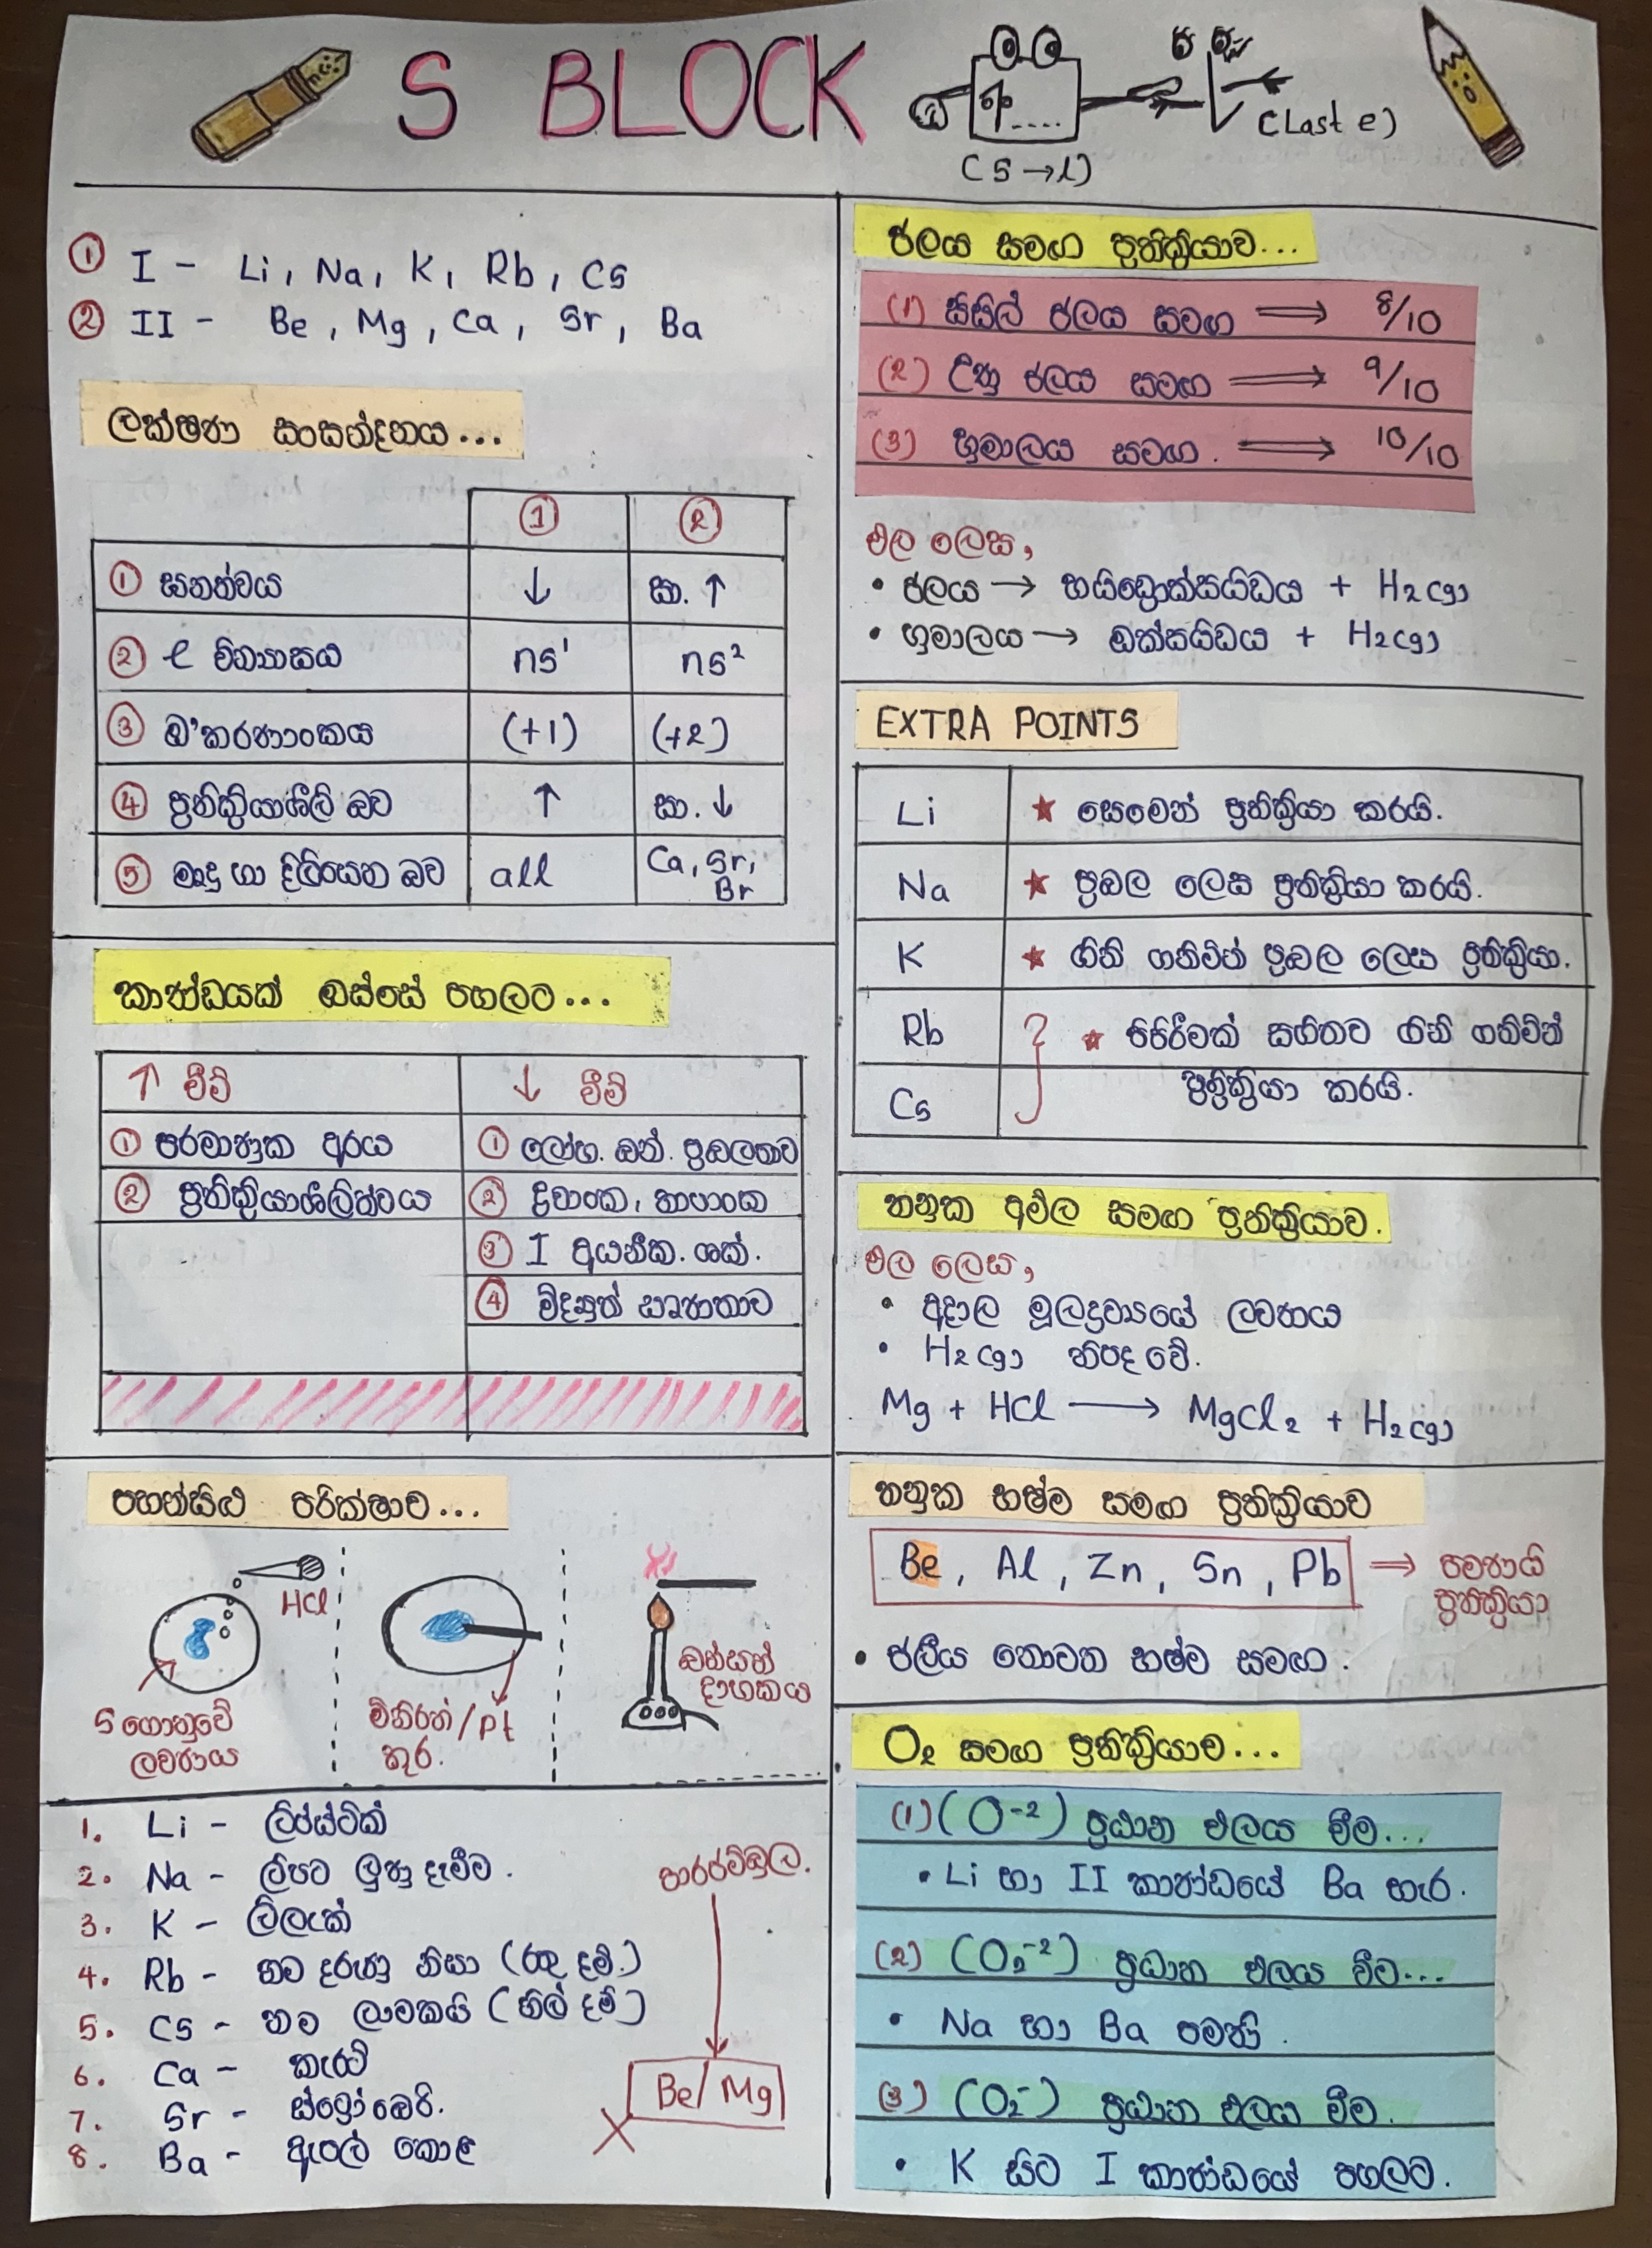 S BLOCK
(Last e)
(s → l)
① I - Li, Na, K, Rb, Cs
② II - Be, Mg, Ca, Sr, Ba
ලක්ෂණ සංසන්දනය...
① ②
① ඝනත්වය ↓ සා. ↑
② e වින්‍යාසය ns¹ ns²
③ ඔ'කරණාංකය (+1) (+2)
④ ප්‍රතික්‍රියාශීලී බව ↑ සා. ↓
⑤ මෘදු හා දිලිසෙන බව all Ca, Sr, Br
කාණ්ඩයක් ඔස්සේ පහලට...
↑ වීම් ↓ වීම්
① පරමාණුක අරය ① ලෝහ. බන්. ප්‍රබලතාව
② ප්‍රතික්‍රියාශීලිත්වය ② ද්‍රවාංක, තාපාංක
③ I අයනීක. ශක්.
④ විද්‍යුත් සෘණතාව
පහන්සිළු පරික්ෂාව...
HCl
S ගොනුවේ
ලවණය
විනිරන් / Pt
කූර.
බන්සන්
දාහකය
1. Li - ලිප්ස්ටික්
2. Na - ලිපට ලුණු දැමීම.
3. K - ලිලැක්
4. Rb - හම දරුණු නිසා (රතු දම්.)
5. Cs - හම ලාමකයි (නිල් දම්)
6. Ca - කැරට්
7. Sr - ස්ට්‍රෝබෙරි.
8. Ba - ඇපල් කොළ
පාරජම්බුල.
Be/Mg
ජලය සමඟ ප්‍රතික්‍රියාව...
(1) සිසිල් ජලය සමඟ ⟹ 8/10
(2) උණු ජලය සමඟ ⟹ 9/10
(3) හුමාලය සමඟ. ⟹ 10/10
ඵල ලෙස,
• ජලය → හයිඩ්‍රොක්සයිඩය + H₂(g)
• හුමාලය → ඔක්සයිඩය + H₂(g)
EXTRA POINTS
Li ★ සෙමෙන් ප්‍රතික්‍රියා කරයි.
Na ★ ප්‍රබල ලෙස ප්‍රතික්‍රියා කරයි.
K ★ ගිනි ගනිමින් ප්‍රබල ලෙස ප්‍රතික්‍රියා.
Rb ★ පිපිරීමක් සහිතව ගිනි ගනිමින්
Cs ප්‍රතික්‍රියා කරයි.
තනුක අම්ල සමඟ ප්‍රතික්‍රියාව.
ඵල ලෙස,
• අදාල මූලද්‍රව්‍යයේ ලවණය
• H₂(g) නිපදවේ.
Mg + HCl → MgCl₂ + H₂(g)
තනුක භෂ්ම සමඟ ප්‍රතික්‍රියාව
Be, Al, Zn, Sn, Pb ⟹ පමණයි
ප්‍රතික්‍රියා
• ජලීය නොවන භෂ්ම සමඟ.
O₂ සමඟ ප්‍රතික්‍රියාව...
(1) (O⁻²) ප්‍රධාන ඵලය වීම...
• Li හා II කාණ්ඩයේ Ba හැර.
(2) (O₂⁻²) ප්‍රධාන ඵලය වීම...
• Na හා Ba පමණි.
(3) (O₂⁻) ප්‍රධාන ඵලය වීම.
• K සිට I කාණ්ඩයේ පහලට.